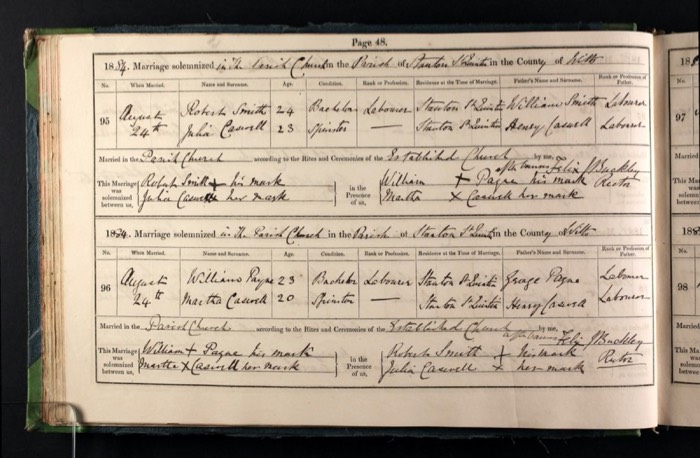 Page 48.
1884. Marriage solemnized in The Parish Church in the Parish of Stanton St Quintin in the County of Wilts
No. When Married. Name and Surname. Age. Condition. Rank or Profession. Residence at the Time of Marriage. Father's Name and Surname. Rank or Profession of Father.
95 August 24th Robert Smith 24 Bachelor Labourer Stanton St Quintin William Smith Labourer
Julia Caswell 23 Spinster — Stanton St Quintin Henry Caswell Labourer
Married in the Parish Church according to the Rites and Ceremonies of the Established Church after banns by me,
This Marriage was solemnized between us, Robert Smith + his mark in the Presence of us, William + Payne his mark Felix J Buckley
Julia Caswell her mark Martha X Caswell her mark Rector
1884. Marriage solemnized in The Parish Church in the Parish of Stanton St Quintin in the County of Wilts
No. When Married. Name and Surname. Age. Condition. Rank or Profession. Residence at the Time of Marriage. Father's Name and Surname. Rank or Profession of Father.
96 August 24th William Payne 23 Bachelor Labourer Stanton St Quintin Payne Labourer
Martha Caswell 20 Spinster — Stanton St Quintin Henry Caswell Labourer
Married in the Parish Church according to the Rites and Ceremonies of the Established Church after banns by me,
This Marriage was solemnized between us, William + Payne his mark in the Presence of us, Robert Smith + his mark Felix J Buckley
Martha X Caswell her mark Julia Caswell X her mark Rector
18
No.
97
Married
This Ma
was
solemn
between
188
No.
98
Married
This Ma
was
solemn
between